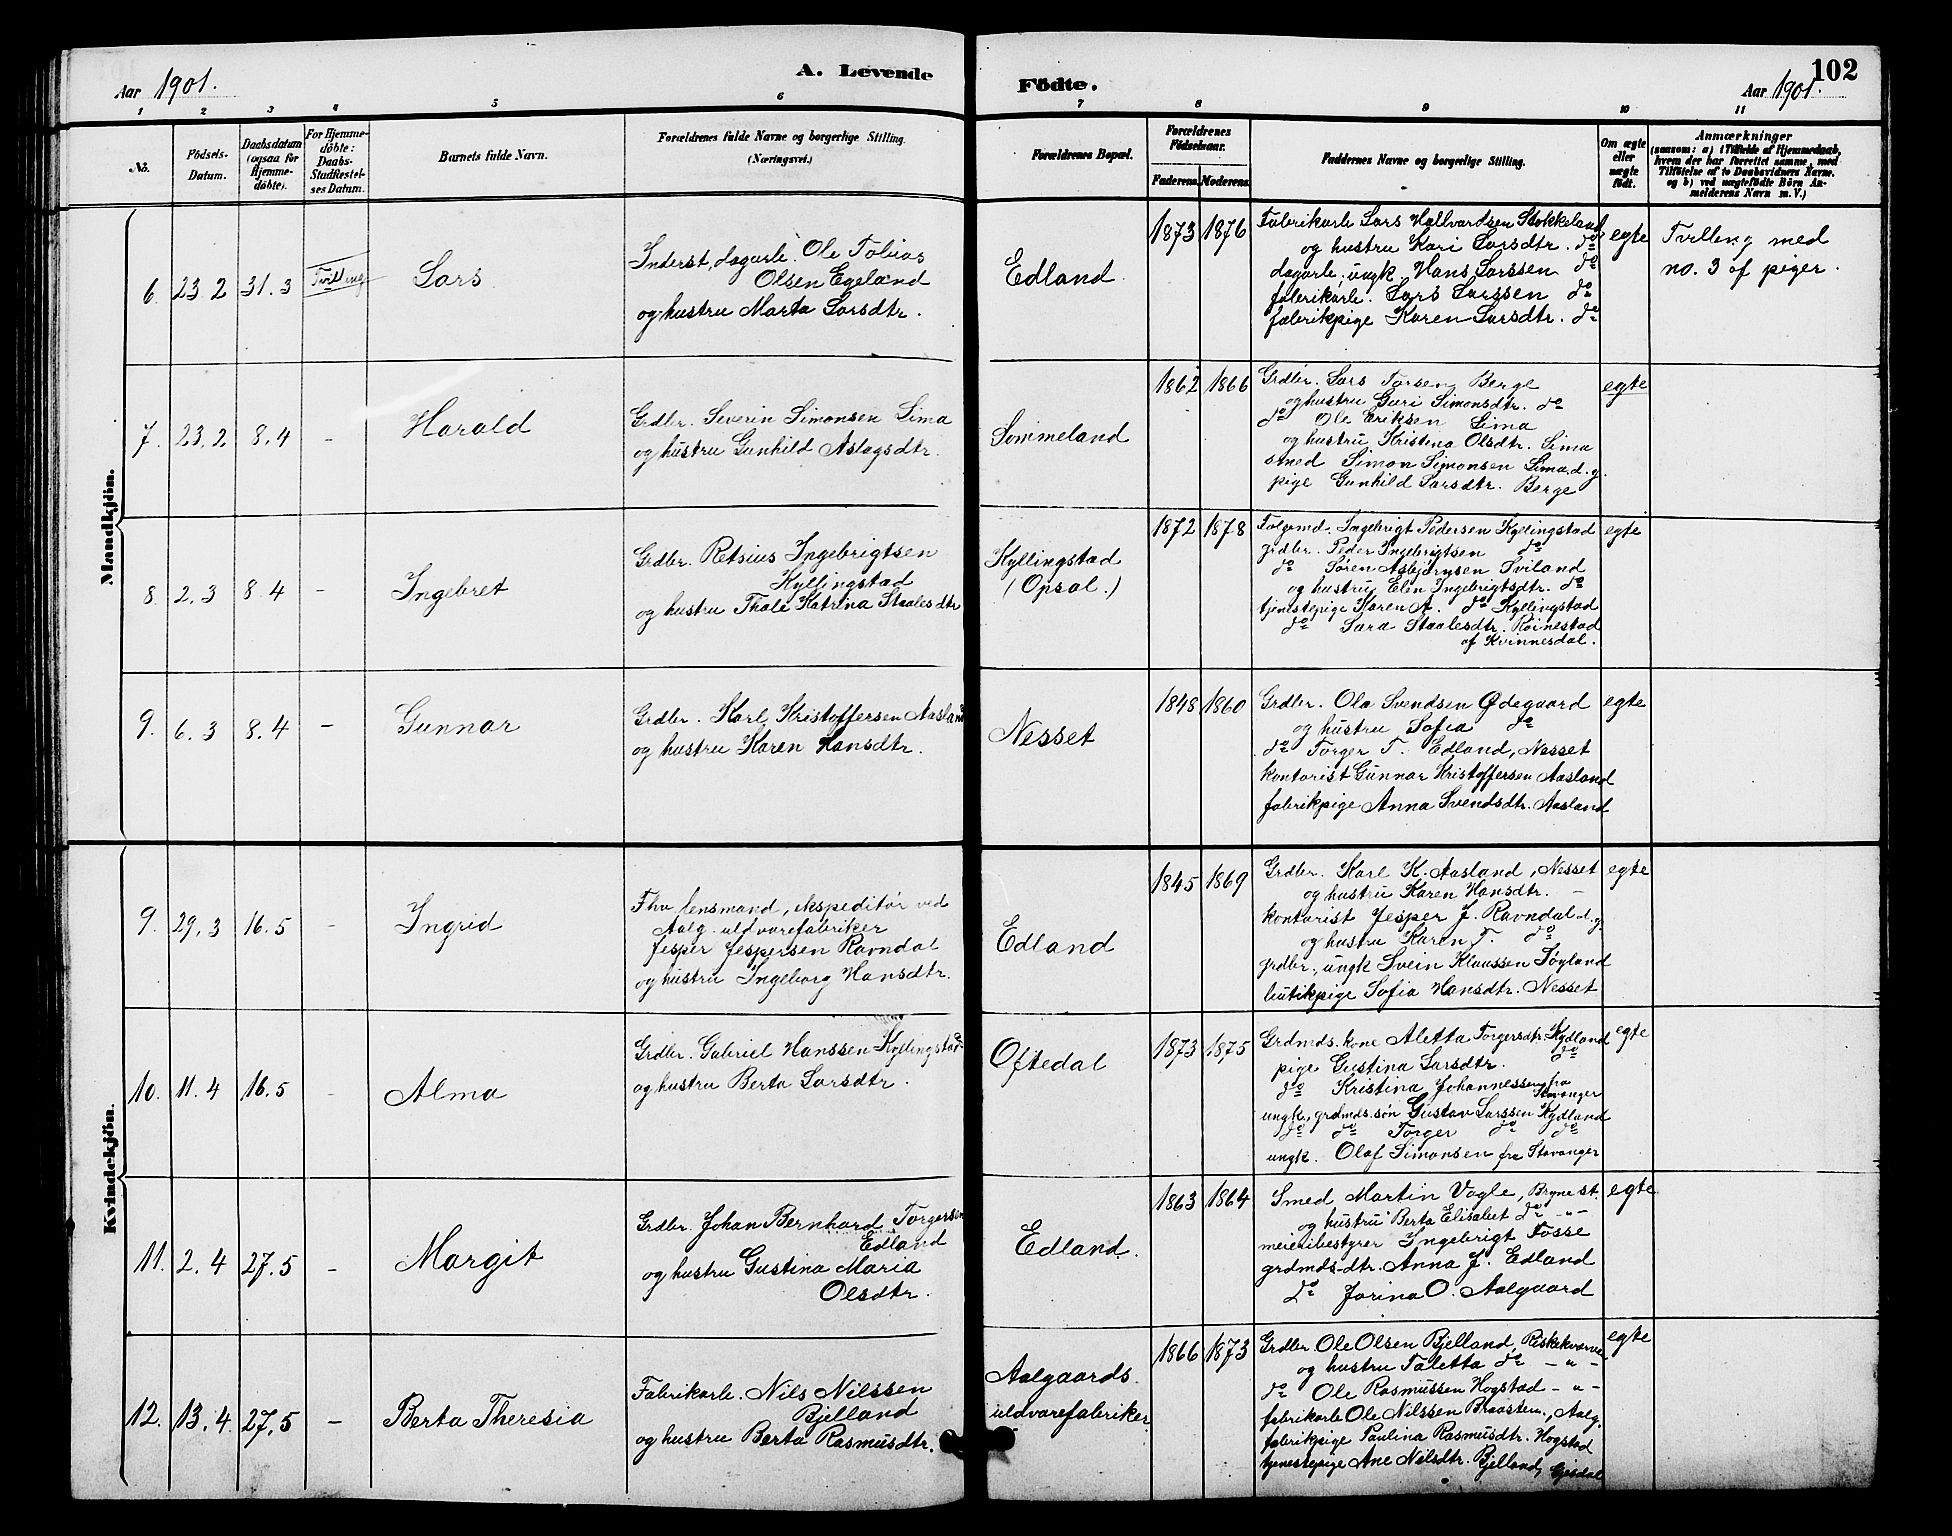 Aar 1901.
A. Levende
Födte.
102
Aar 1901.
1 2 3 4 5 6 7 8 9 10 11
No.
Födsels-
Datum.
Daabsdatum
(ogsaa for
Hjemme-
döbte).
For Hjemme-
döbte:
Daabs-
Stadfæstel-
ses Datum.
Barnets fulde Navn.
Forældrenes fulde Navne og borgerlige Stilling.
(Næringsvei.)
Forældrenes Bopæl.
Forældrenes
Födselsaar.
Faderens. Moderens.
Faddernes Navne og borgerlige Stilling.
Om ægte
eller
uægte
födt.
Anmærkninger
(saasom: a) i Tilfælde af Hjemmedaab,
hvem der har forrettet samme, med
Tilföielse af to Daabsvidners Navne.
og b) ved uægtefödte Börn An-
melderens Navn m. V.)
Mandkjön.
6. 23.2 31.3 Tvilling Lars
Inderst, dagarb. Ole Tobias
Olsen Egeland
og hustru Marta Larsdtr.
Edland
1873 1876
Fabrikarb. Lars Hallvardsen Stokkeland
og hustru Kari Larsdtr. do
dagarb. ungk. Hans Larssen do
fabrikarb. Lars Larssen do
fabrikpige Karen Larsdtr. do
egte
Tvilling med
no. 3 af piger.
7. 23.2 8.4 - Harald
Grdbr. Severin Simonsen Lima
og hustru Gunhild Aslagsdtr.
Sømmeland
1862 1866
Grdbr. Lars Torsen Berge
og hustru Guri Simonsdtr. do
do Ole Eriksen Lima
og hustru Kristina Olsdtr. Lima
smed Simon Simonsen Lima, d. y.
pige Gunhild Larsdtr. Berge
egte
8. 2.3 8.4 - Ingebret
Grdbr. Retsius Ingebrigtsen
Kyllingstad
og hustru Thale Katrina Staalesdtr
Kyllingstad
(Opsal.)
1872 1878
Folgemd. Ingebrigt Pedersen Kyllingstad
grdbr. Peder Ingebrigtsen do
do Søren Asbjørnsen Tviland
og hustru Elen Ingebrigtsdtr. do
tjenstepige Karen A. do Kyllingstad
do Sara Staalesdtr. Røinestad
af Kvinnesdal.
egte
9. 6.3 8.4 - Gunnar
Grdbr. Karl Kristoffersen Aasland
og hustru Karen Hansdtr.
Nesset
1848 1860
Grdbr. Ola Svendsen Ødegaard
og hustru Sofia do
do Torger T. Edland, Nesset
kontorist Gunnar Kristoffersen Aasland
fabrikpige Anna Svendsdtr. Aasland
egte
Kvindekjön.
9. 29.3 16.5 - Ingrid
Fhv. lensmand, ekspeditør ved
Aalg. uldvarefabriker
Jesper Jespersen Ravndal
og hustru Ingeborg Hansdtr.
Edland
1845 1869
Grdbr. Karl K. Aasland, Nesset
og hustru Karen Hansdtr. -
kontorist Jesper J. Ravndal d. y.
og hustru Karen T. do
grdbr., ungk Svein Klaussen Tøgland
butikpige Sofia Hansdtr. Nesset
egte
10. 11.4 16.5 - Alma
Grdbr. Gabriel Hanssen Kyllingstad
og hustru Berta Larsdtr.
Oftedal
1873 1875
Grdmds. kone Aletta Torgersdtr. Kydland
pige Gustina Larsdtr. do
do Kristina Johannessen fra
Stavanger
ungk., grdmds. søn Gustav Larssen Kydland
do do Torger do do
ungk. Olaf Simonsen fra Stavanger
egte
11. 2.4 27.5 - Margit
Grdbr. Johan Bernhard Torgersen
Edland
og hustru Gustina Maria
Olsdtr.
Edland.
1863 1864
Smed Martin Vagle, Bryne st.
og hustru Berta Elisabet do - " -
meieribestyrer Ingebrigt Fosse
grdmds-dtr. Anna J. Edland
do Jorina O. Aalgaard
egte
12. 13.4 27.5 - Berta Theresia
Fabrikarb. Nils Nilssen
Bjelland
og hustru Berta Rasmusdtr.
Aalgaards
uldvarefabriker
1866 1873
Grdbr. Ole Olsen Bjelland, Riskekværnen
og hustru Taletta do - " -
do Ole Rasmussen Hogstad - " -
fabrikarb Ole Nilssen Braasten, Aalg.
fabrikpige Paulina Rasmusdtr. Hogstad
tjenestepige Ane Nilsdtr. Bjelland, Gjesdal
egte